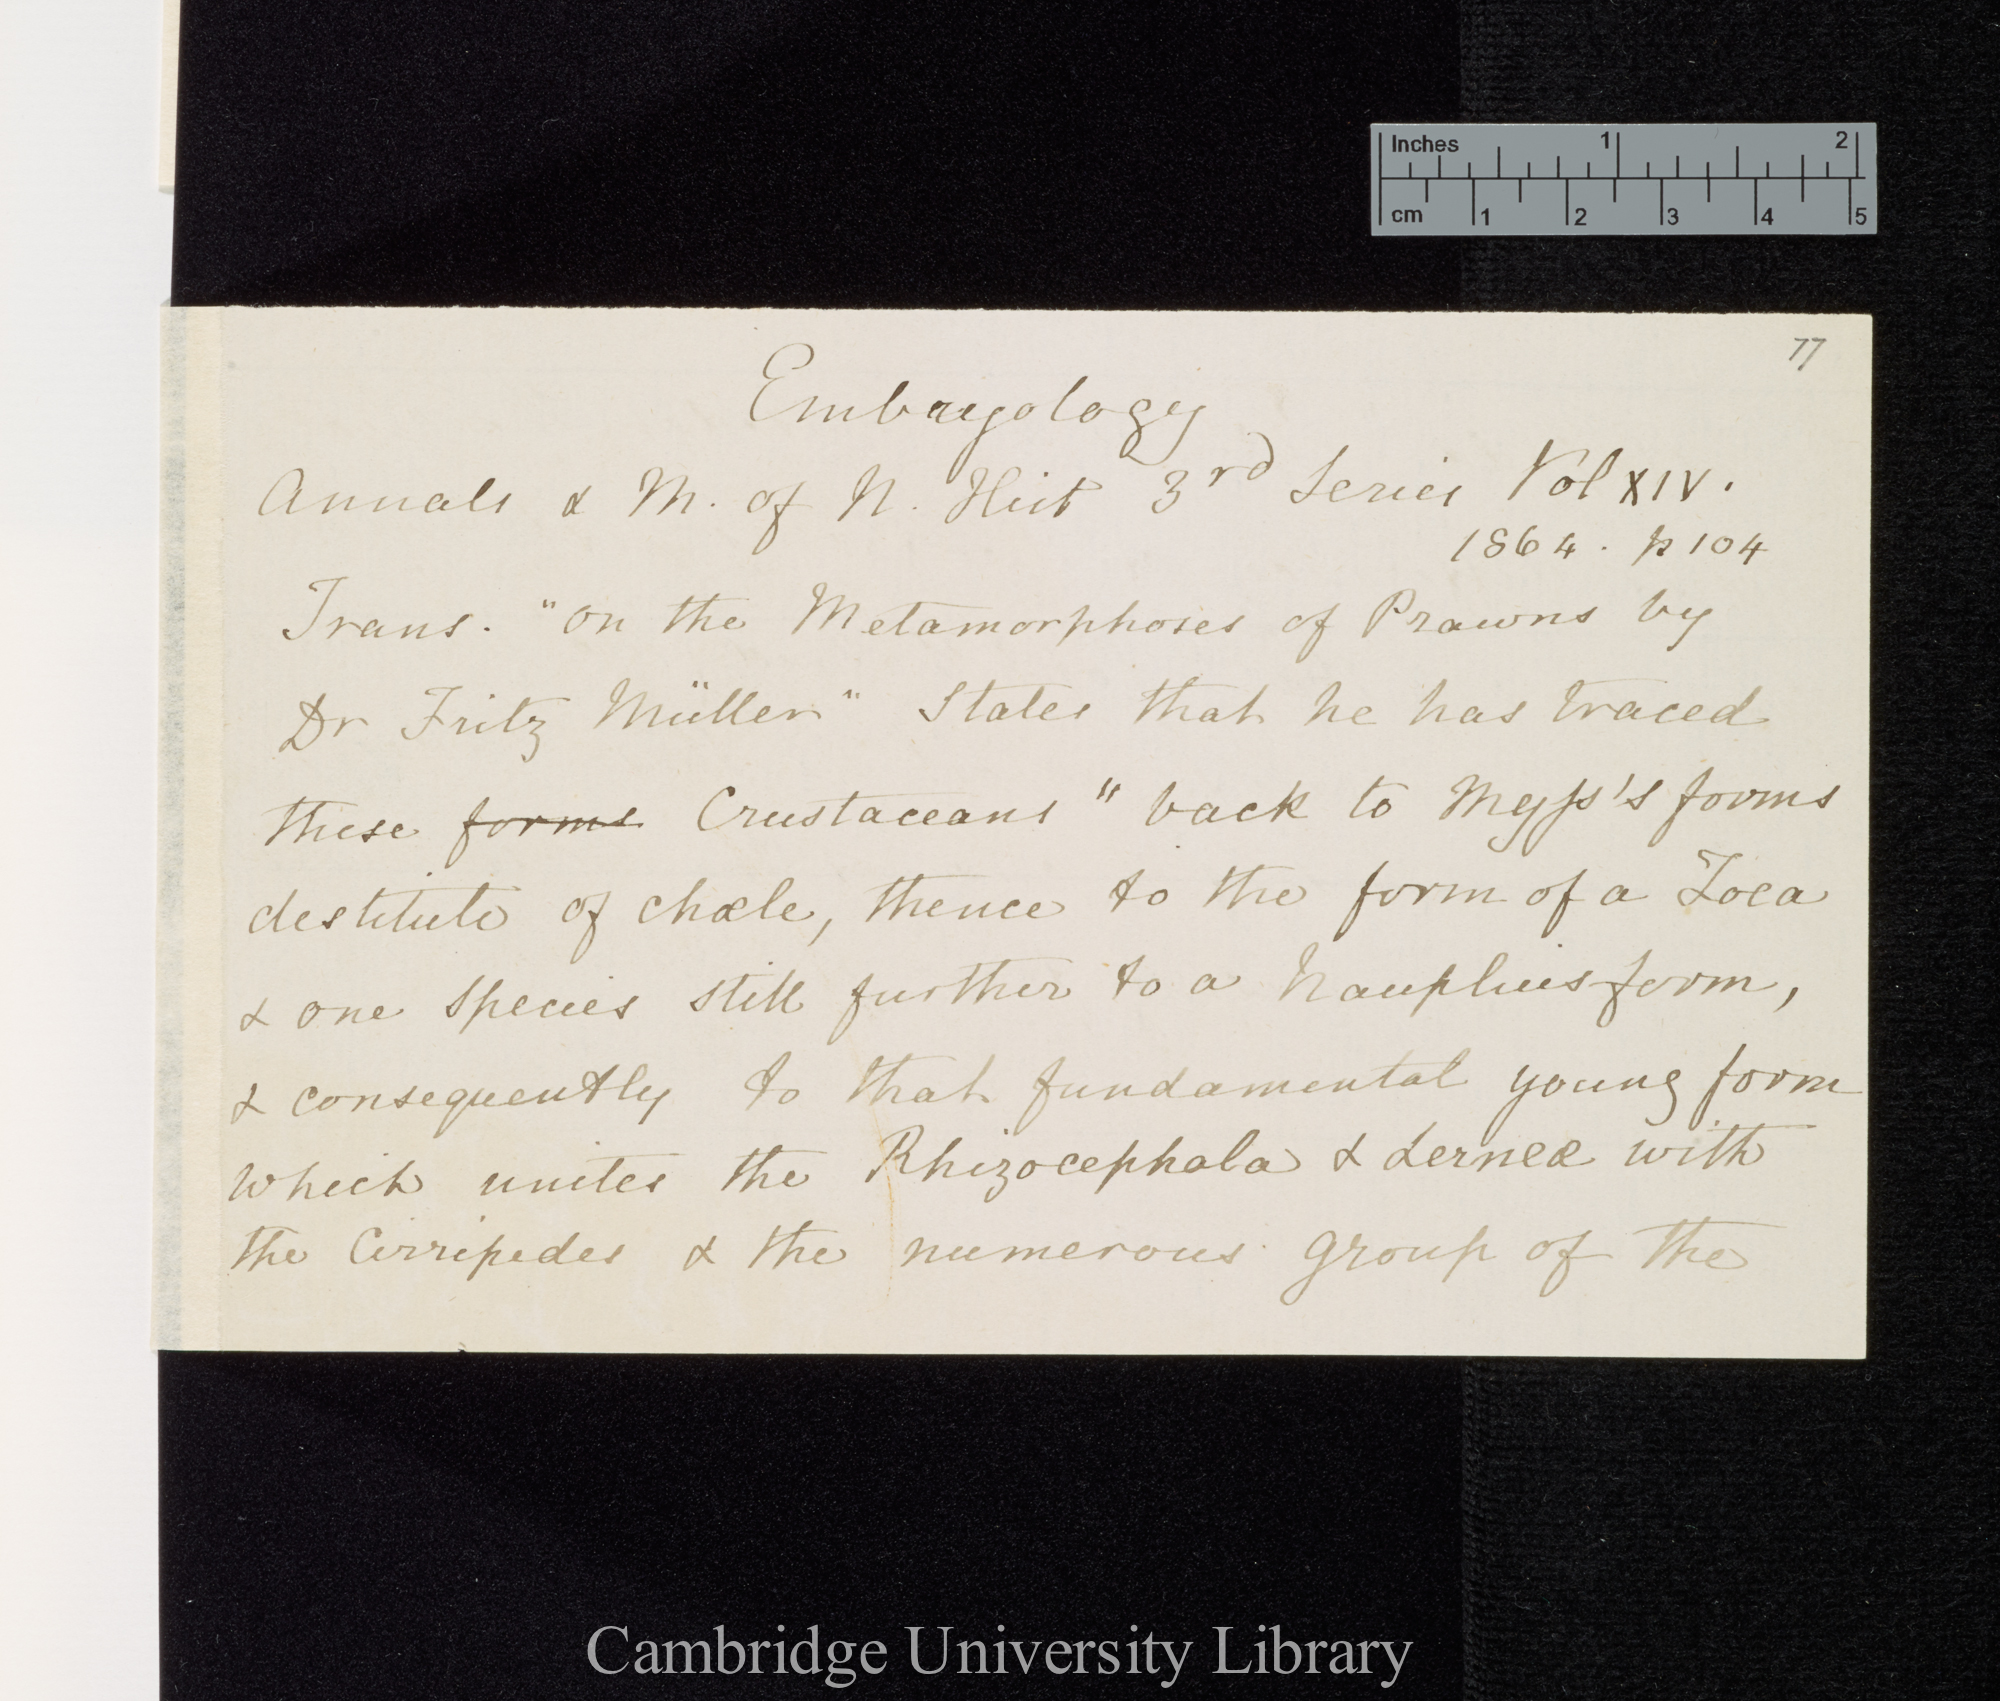 Inches 1 2
cm 1 2 3 4 5
77
Embryology
Annals & M. of N. Hist 3rd Series Vol XIV.
1864. p 104
Trans. "on the Metamorphoses of Prawns by
Dr Fritz Müller" States that he has traced
these forms Crustaceans "back to Myss's forms
destitute of chæle, thence to the form of a Zoea
& one species still further to a Nauplius form,
& consequently to that fundamental young form
which unites the Rhizocephala & Lerneæ with
the Cirripedes & the numerous group of the
Cambridge University Library